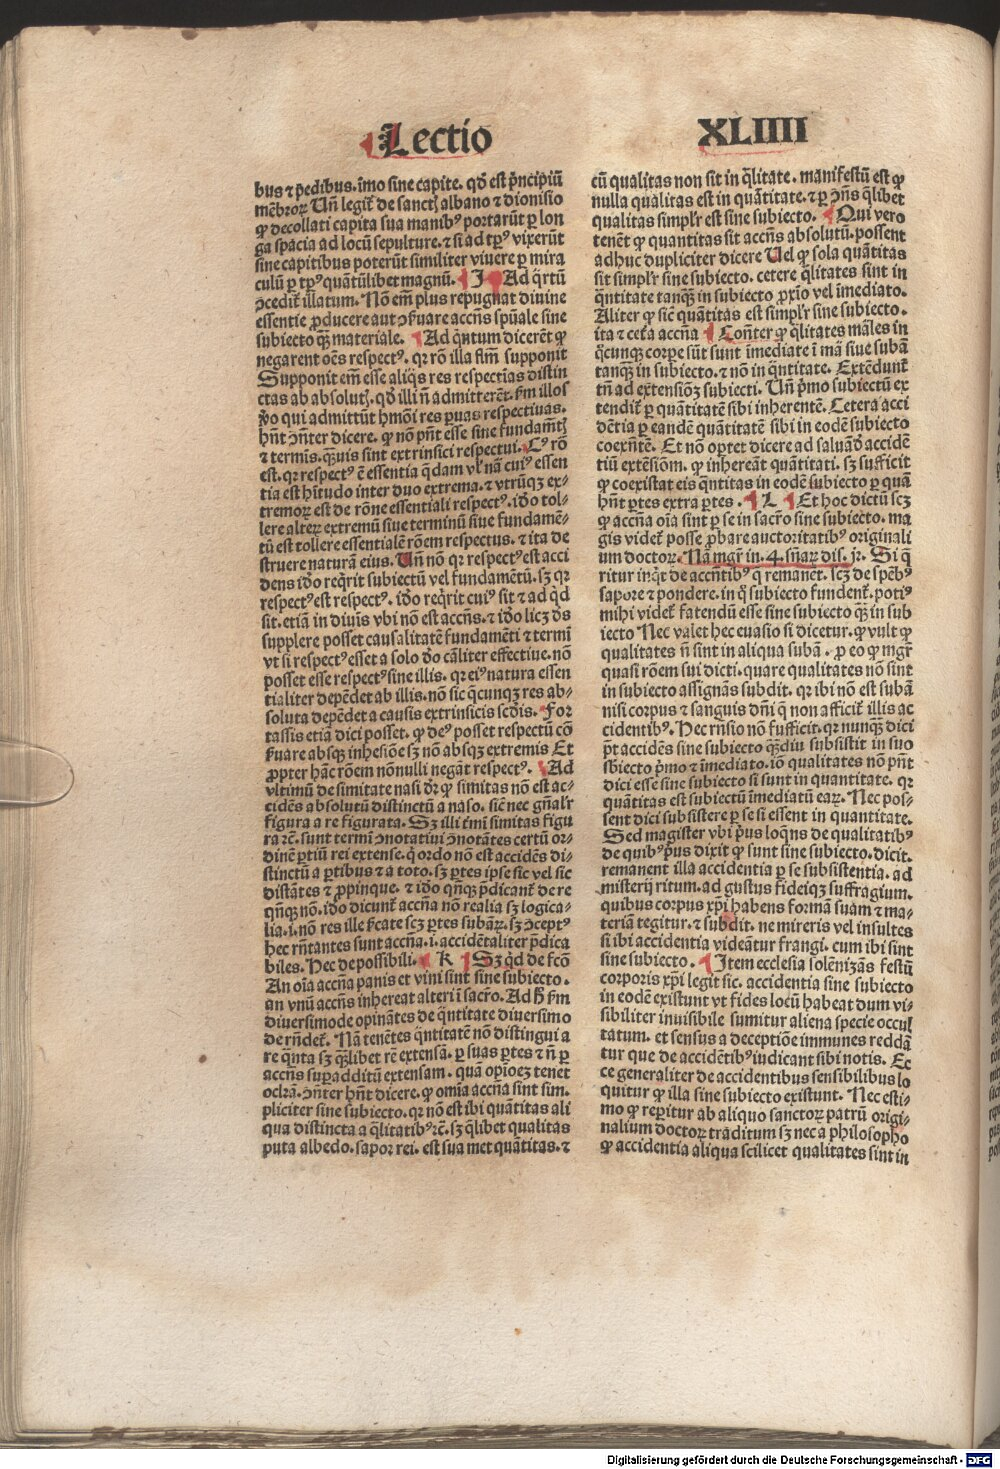 Lectio
XLIIII
bus ⁊ pedibus. īmo sine capite. qď est p̄ncipiū
mēbroꝝ Un̄ legit᷑ de sanctꝭ albano ⁊ dionisio
ꝙ decollati capita sua manibꝰ portarūt ꝑ lon
ga spacia ad locū sepulture. ⁊ si ad tꝑꝰ vixerūt
sine capitibus poterūt similiter viuere ꝑ mira
culū ꝑ tꝑꝰ quātūlibet magnū. ¶ J ¶ Ad q̄rtū
ꝯcedit᷑ illatum. Nō em̄ plus repugnat diuine
essentie ꝓducere aut ꝯẜuare accn̄s spūale sine
subiecto qꝫ̄ materiale. ¶ Ad q̄ntum dicerēt ꝙ
negarent oēs respectꝰ. qꝛ rō illa fl̄m supponit
Supponit em̄ esse aliq̄s res respectiuas distin
ctas ab absolutꝭ. qď illi n̄ admitterēt. ẜm illos
ꝟo qui admittūt hmōi res ꝑuas respectiuas.
hn̄t ꝯn̄ter dicere. ꝙ nō pn̄t esse sine fundam̄tꝭ
⁊ termīs. q̄uis sint extrinsici respectui. Cꝰ rō
est. qꝛ respectꝰ ē essentia q̄dam vl̓ nā cuiꝰ essen
tia est hītudo inter duo extrema. ⁊ vtrūqꝫ ex⸗
tremoꝝ est de rōne essentiali respectꝰ. iďo tol⸗
lere alteꝝ extremū siue terminū siue fundamē⸗
tū est tollere essentialē rōem respectus. ⁊ ita de
struere naturā eius. Un̄ nō qꝛ respectꝰ est acci
dens iďo reqͥrit subiectū vel fundamētū. sꝫ qꝛ
respectꝰ est respectꝰ. iďo reqͥrit cuiꝰ sit ⁊ ad qď
sit. etiā in diuīs vbi nō est accn̄s. ⁊ iďo licꝫ ds̄
supplere posset causalitatē fundamēti ⁊ termī
vt si respectꝰ esset a solo ďo cāliter effectiue. nō
posset esse respectꝰ sine illis. qꝛ eiꝰ natura essen
tialiter depēdet ab illis. nō sic q̄cunqꝫ res ab⸗
soluta depēdet a causis extrinsicis scďis. For
tassis etiā dici posset. ꝙ deꝰ posset respectū cō
ẜuare absqꝫ inhesiōe sꝫ nō absqꝫ extremis Et
ꝓpter hāc rōem nōnulli negāt respectꝰ. ¶ Ad
vltimū de simitate nasi dr̄ ꝙ simitas nō est ac⸗
cidēs absolutū distinctū a naso. sic̄ nec gn̄alr̄
figura a re figurata. Sꝫ illi t̓mī simitas figu
ra ⁊c̄. sunt termī ꝯnotatiui ꝯnotātes certū or⸗
dinē ꝑtiū rei extense. q̇ ordo nō est accidēs di⸗
stinctū a ꝑtibus ⁊ a toto. sꝫ ꝑtes ipse sic vel sic
distātes ⁊ ꝓpinque. ⁊ iďo qn̄qꝫ p̄dicant᷑ de re
qn̄qꝫ nō. iďo dicunt᷑ accn̄a nō realia sꝫ logica⸗
lia. i. nō res ille ẜcate scꝫ ꝑtes subāꝝ. sꝫ ꝯceptꝰ
hec rn̄tantes sunt accn̄a. i. accidētaliter p̄dica
biles. Hec de possibili. ¶ K ¶ Sꝫ qď de fcō
An oīa accn̄a panis et vini sint sine subiecto.
an vnū accn̄s inhereat alteri ī sacr̄o. Ad ħ ẜm
diuersimode opinātes de q̄ntitate diuersimo
de rn̄det᷑. Nā tenētes q̄ntitatē nō distingui a
re q̄nta sꝫ qꝫ̄libet rē extensā. ꝑ suas ꝑtes ⁊ n̄ ꝑ
accn̄s suꝑadditū extensam. quā opīoeꝫ tenet
ocḱa. ꝯn̄ter hn̄t dicere. ꝙ omīa accn̄a sint sim.
pliciter sine subiecto. qꝛ nō est ibi quātitas ali
qua distincta a q̄litatibꝰ ⁊c̄. sꝫ q̄libet qualitas
puta albedo. sapor rei. est sua met quātitas. ⁊
cū qualitas non sit in q̄litate. manifestū est ꝙ
nulla qualitas est in quātitate. ⁊ ꝑ ꝯn̄s q̄libet
qualitas simpl̓r est sine subiecto. ¶ Qui vero
tenēt ꝙ quantitas sit accn̄s absolutū. possent
adhuc dupliciter dicere Uel ꝙ sola quātitas
sit simpl̓r sine subiecto. cetere q̄litates sint in
q̄ntitate tanqꝫ̄ in subiecto ꝓxīo vel īmediato.
Aliter ꝙ sic̄ quātitas est simpl̓r sine subiecto.
ita ⁊ cet̓a accn̄a ¶ Cōn̄ter ꝙ q̄litates mālesin
q̄cunqꝫ corꝑe sūt sunt īmediate ī mā siue subā
tanqꝫ in subiecto. ⁊ nō in q̄ntitate. Extēdunt᷑
tn̄ ad extensiōꝫ subiecti. Un̄ pͥmo subiectū ex
tendit᷑ ꝑ quātitatē sibi inherentē. Cetera acci
dētia ꝑ eandē quātitatē sibi in eodē subiecto
coexn̄tē. Et nō opꝫtet dicere ad saluāďo accidē
tiū extēsiōm. ꝙ inhereāt quātitati. sꝫ sufficit
ꝙ coexistat eis q̄ntitas in eodē subiecto ꝑ quā
hn̄t ꝑtes extra ꝑtes. ¶ L ¶ Et hoc dictū scꝫ
ꝙ accn̄a oīa sint ꝑ se in sacr̄o sine subiecto. ma
gis videt᷑ posse ꝓbare auctoritatibꝰ originali
um doctoꝝ. Nā mgr̄ in. 4. sn̄aꝝ dis. jꝛ. Si q̄
ritur inqͥt de accn̄tibꝰ q̄ remanēt. scꝫ de spēbꝰ
sapore ⁊ pondere. in q̇ subiecto fundent᷑. potiꝰ
mihi videt᷑ fatendū esse sine subiecto qꝫ̄ in sub
iecto Nec valet hec euasio si dicetur. ꝙ vult ꝙ
qualitates n̄ sint in aliqua subā. ꝓ eo ꝙ mgr̄
quasi rōem sui dicti. quare qualitates nō sint
in subiecto assignās subdit. qꝛ ibi nō est subā
nisi corpus ⁊ sanguis dn̄i q̇ non afficit᷑ illis ac
cidentibꝰ. Hec rn̄sio nō sufficit. qꝛ nunqꝫ̄ dici
pt̄ accidēs sine subiecto qꝫ̄diu subsistit in suo
sb̄iecto pͥmo ⁊ īmediato. iō qualitates nō pn̄t
dici esse sine subiecto si sunt in quantitate. qꝛ
quātitas est subiectū īmediatū eaꝝ. Nec pos⸗
sent dici subsistere ꝑ se si essent in quantitate.
Sed magister vbi pͥus loqn̄s de qualitatibꝰ
de quibꝰ pͥus dixit ꝙ sunt sine subiecto. dicit.
remanent illa accidentia ꝑ se subsistentia. ad
misterij ritum. ad gustus fideiqꝫ suffragium.
quibus corpus xp̄i habens formā suam ⁊ ma⸗
teriā tegitur. ⁊ subdit. ne mireris vel insultes
si ibi accidentia videātur frangi. cum ibi sint
sine subiecto. ¶ Item ecclesia solēnizās festū
corporis xp̄i legit sic. accidentia sine subiecto
in eodē existunt vt fides locū habeat dum vi⸗
sibiliter inuisibile sumitur aliena specie occul
tatum. et sensus a deceptiōe immunes reddā
tur que de accidētibꝰ iudicant sibi notis. Ec
ce generaliter de accidentibus sensibilibus lo
quitur ꝙ illa sine subiecto existunt. Nec esti⸗
mo ꝙ reꝑitur ab aliquo sanctoꝝ patrū origi⸗
nalium doctoꝝ traditum sꝫ nec a philosopho
ꝙ accidentia aliqua scilicet qualitates sint in
Digitalisierung gefördert durch die Deutsche Forschungsgemeinschaft - DFG